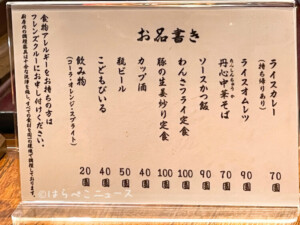 お品書き
ライスカレー
(持ち帰りあり) 70圓
ライスオムレツ 70圓
丹心中華そば 90圓
ソースかつ飯 90圓
わんこフライ定食 100圓
豚の生姜炒り定食 100圓
カップ酒 40圓
瓶ビール 50圓
こどもびいる 40圓
飲み物
(コーラ・オレンジ・スプライト) 20圓
食物アレルギーをお持ちの方は
フレンズクルーにお申し付けください。
はらぺこニュース